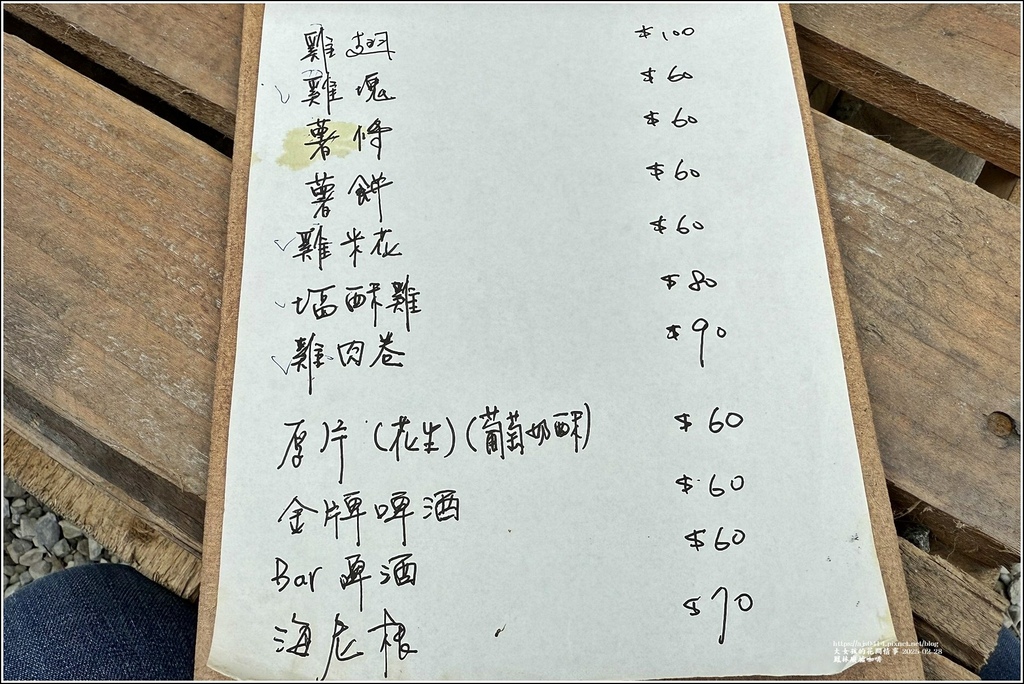 雞翅 $100
雞塊 $60
薯條 $60
薯餅 $60
雞米花 $60
塩酥雞 $80
雞肉卷 $90
厚片(花生)(葡萄奶酥) $60
金牌啤酒 $60
Bar 啤酒 $60
海尼根 $70
大女孩的花間情事 2025-02-28